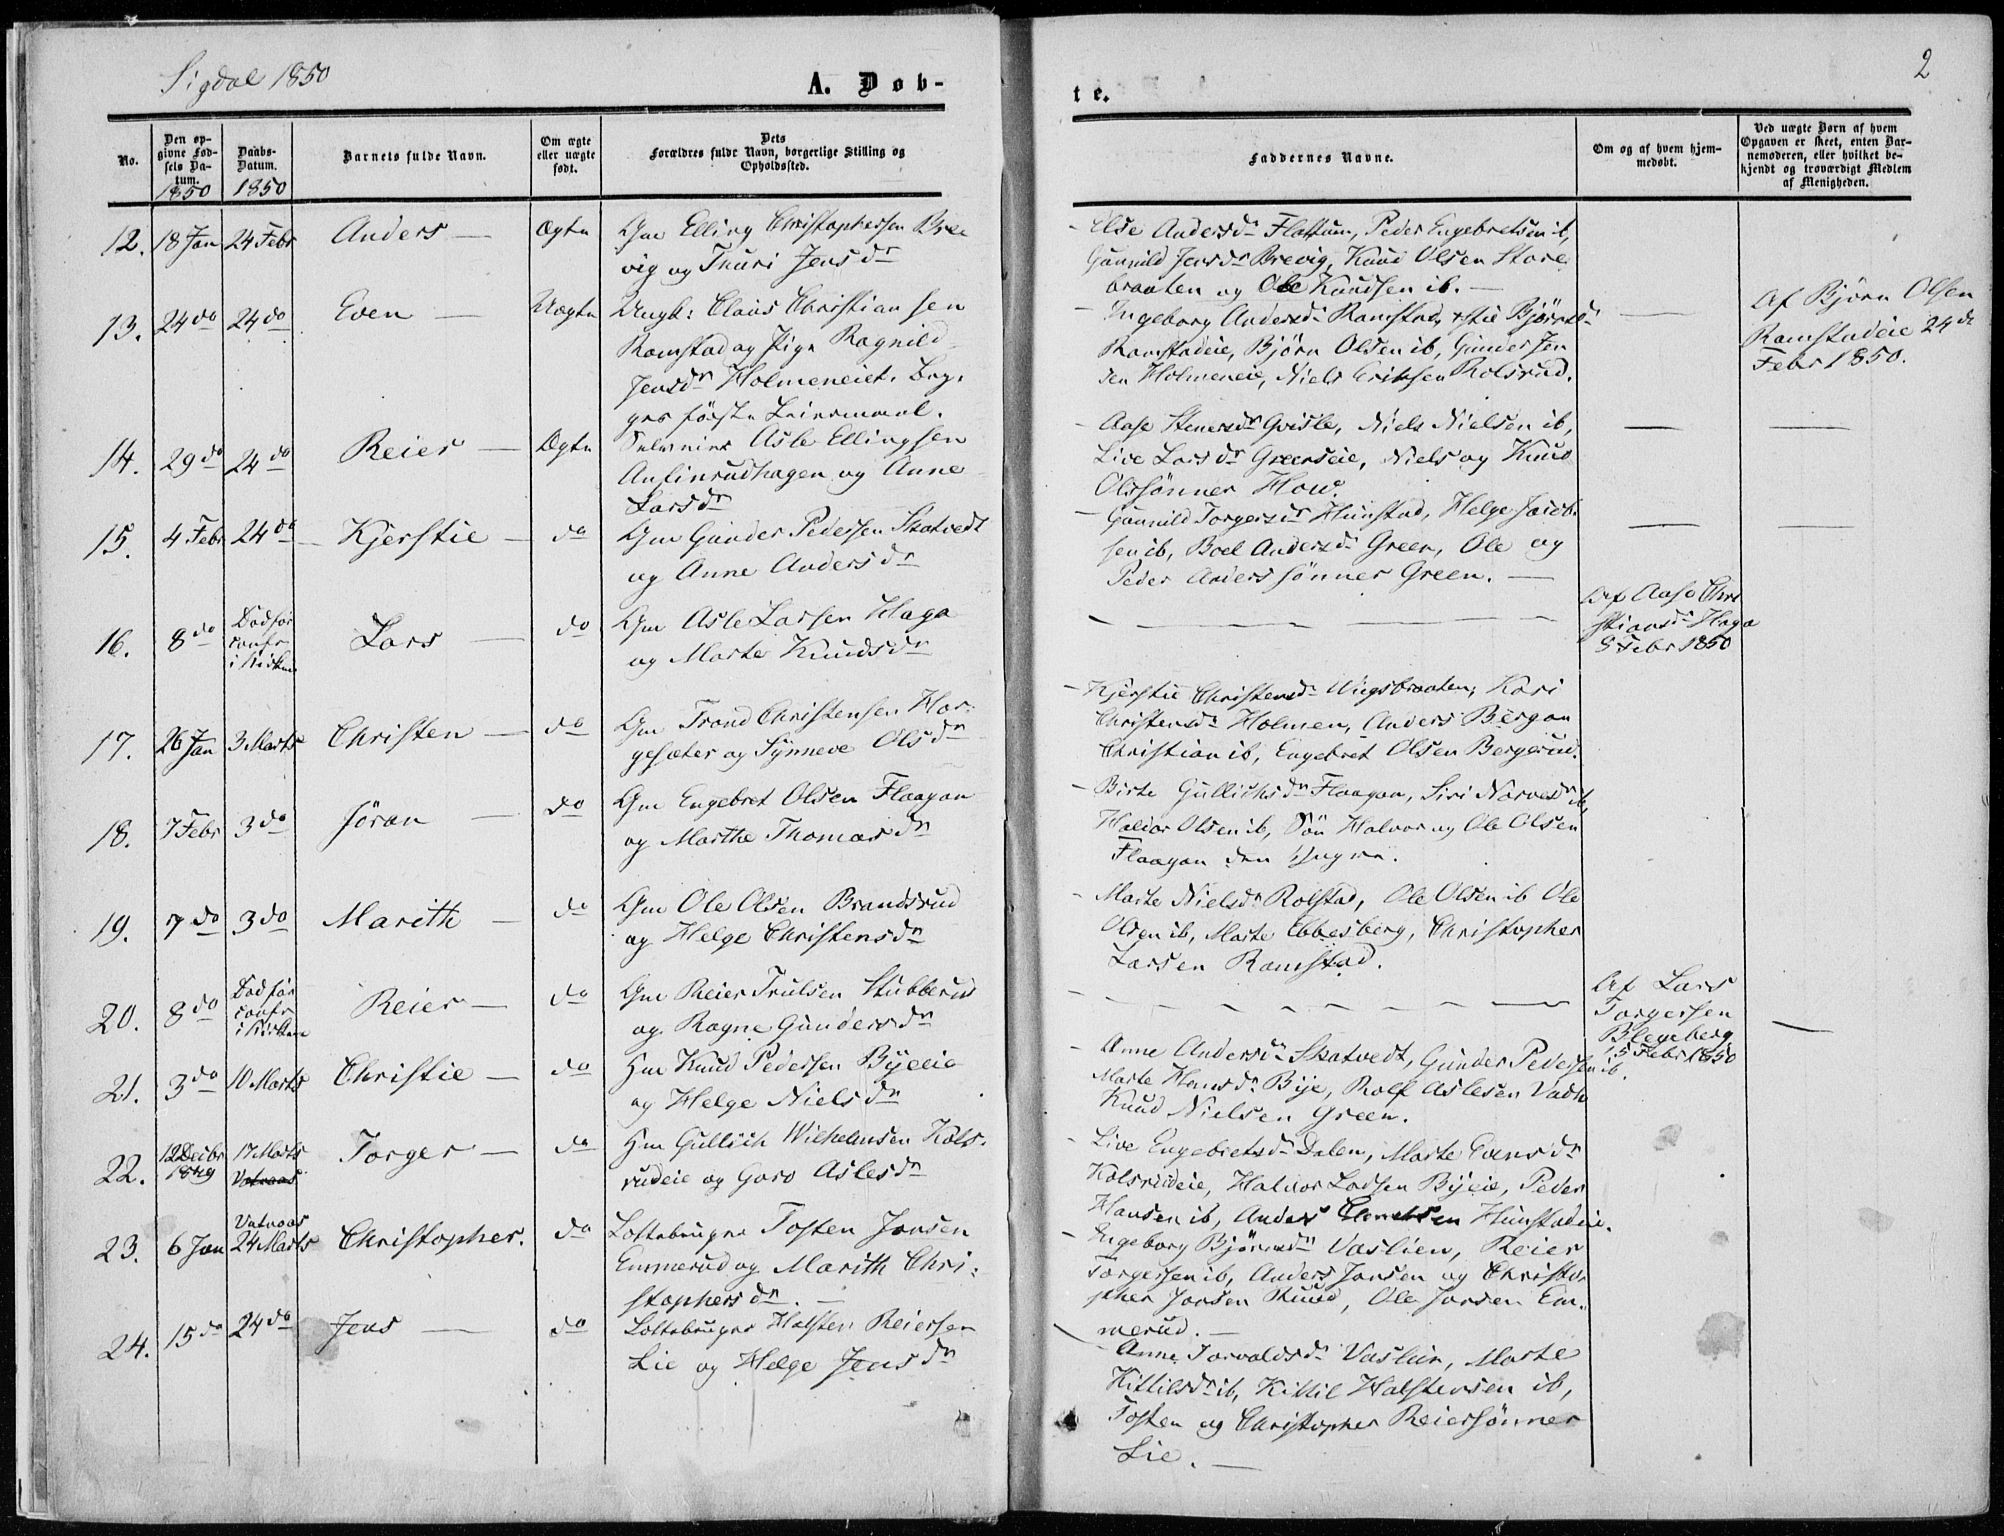 Sigdal 1850
A. Døb-
te.
2
No.
Den op-
givne Fød-
sels Da-
tum.
1850
Daabs-
Datum.
1850
Barnets fulde Navn.
Om ægte
eller uægte
født.
Dets
Forældres fulde Navn, borgerlige Stilling og
Opholdssted.
Faddernes Navne.
Om og af hvem hjem-
medøbt.
Ved uægte Børn af hvem
Opgaven er skeet, enten Bar-
nemoderen, eller hvilket be-
kjendt og troværdigt Medlem
af Menigheden.
12. 18 Jan 24 Febr Anders — Ægte Gm Elling Christophersen Bree
vig og Thuri Jensdr
- Else Andersdr Flattum, Peder Engebretsen ib,
Gunnild Jensdr Brevig, Knud Olsen Store
braaten og Ole Knudsen ib. —
13. 24 do 24 do Even — Uægte Ungk: Claus Christiansen
Ramstad og Pige Ragnild
Jensdr Holmeneiet. Beg-
ges første Leiermaal.
- Ingeborg Andersdr Ramstad, Bjørnsdr
Ramstadeie, Bjørn Olsen ib, Gunder Jen
sen Holmeneie, Niels Eriksen Kolsrud.
Af Bjørn Olsen
Ramstadeie 24 de
Febr 1850.
14. 29 do 24 do Reier — Ægte Selveier Asle Ellingsen
Anfinrudhagen og Anne
Larsdr
- Aase Stenersdr Grisle, Niels Nielsen ib,
Live Larsdr Greenseie, Niels og Knud
Olssønner How.
15. 4 Febr 24 do — Kjerstie — do Gm Gunder Pedersen Skatvedt
og Anne Andersdr
- Gunnild Torgersdr Hunstad, Helge Jacob-
sen ib, Boel Andersdr Green, Ole og
Peder Anderssønner Green. —
16. 8 do Død før
conf
i Kirken Lars — do Gm Asle Larsen Haga
og Marte Knudsdr
Af Aase Chri
stiansdr Haga
9 Febr 1850
17. 26 Jan 3 Marts Christen — do Gm Trond Christensen Hor-
gesæter og Synneve Olsdr
- Kjerstie Christensdr Wiigsbraaten, Kari
Christensdr Holmen, Anders Bergan
Christian ib, Engebret Olsen Bergerud.
18. 7 Febr 3 do Jøran — do Gm Engebret Olsen Flaagan
og Marthe Thomasdr
- Birte Gulliksdr Flaagan, Siri Narvesdr ib,
Haldor Olsen ib, Søn Halvor og Ole Olsen
Flaagan den Yngre.
19. 7 do 3 do Marith — do Gm Ole Olsen Brandsrud
og Helge Christensdr
- Marte Nielsdr Rolstad, Ole Olsen ib Ole
Olsen ib, Marte Ebbesberg, Christopher
Larsen Ramstad.
20. 8 do Død før
conf
i Kirken Reier — do Gm Reier Trulsen Stubberud
og Ragne Gundersdr
Af Lars
Torgersen
Blegeberg
15 Febr 1850
21. 3 do 10 Marts Christie — do Hm Knud Pedersen Byeeie
og Helge Nielsdr
- Anne Andersdr Skatvedt, Gunder Pedersen ib.
Marte Hansdr Bye, Rolf Aslesen Vad
Knud Nielsen Green.
22. 12 Decbr
1849 17 Marts
Vatnaas Torger — do Hm Gullich Wilhelmsen Kols-
rudeie og Goro Aslesdr
- Live Engebretsdr Dalen, Marte Evensdr
Kolsrudeie, Halvor Ladsen Byeie, Peder
Hansen ib, Anders Hunstadeie.
23. 6 Jan Vatnaas
24 Marts Christopher. do Lottebruger Tosten Jonsen
Emmerud og Marith Chri-
stophersdr. —
- Ingeborg Bjørnsdr Vaslien, Reier
Torgersen ib, Anders Jonsen og Christo-
pher Jonsen Ruud, Ole Jonsen Em-
merud. —
24. 15 do 24 do Jens — do Lottebruger Halsten Reiersen
Lie og Helge Jensdr
- Anne Torvaldsdr Vaslien, Marte
Kittilsdr ib, Kittil Halstensen ib,
Tosten og Christopher Reiersønner
Lie. —